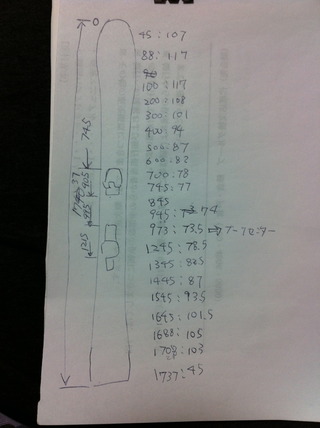 0
45:107
88:117
100:117
200:108
300:101
400:94
500:87
600:82
700:78
745:77
845
945:74
973:73.5⇒アーアセンター
1245:78.5
1345:82.5
1445:87
1545:93.5
1645:101.5
1688:105
1708:103
1737:45
745
905
945
1245